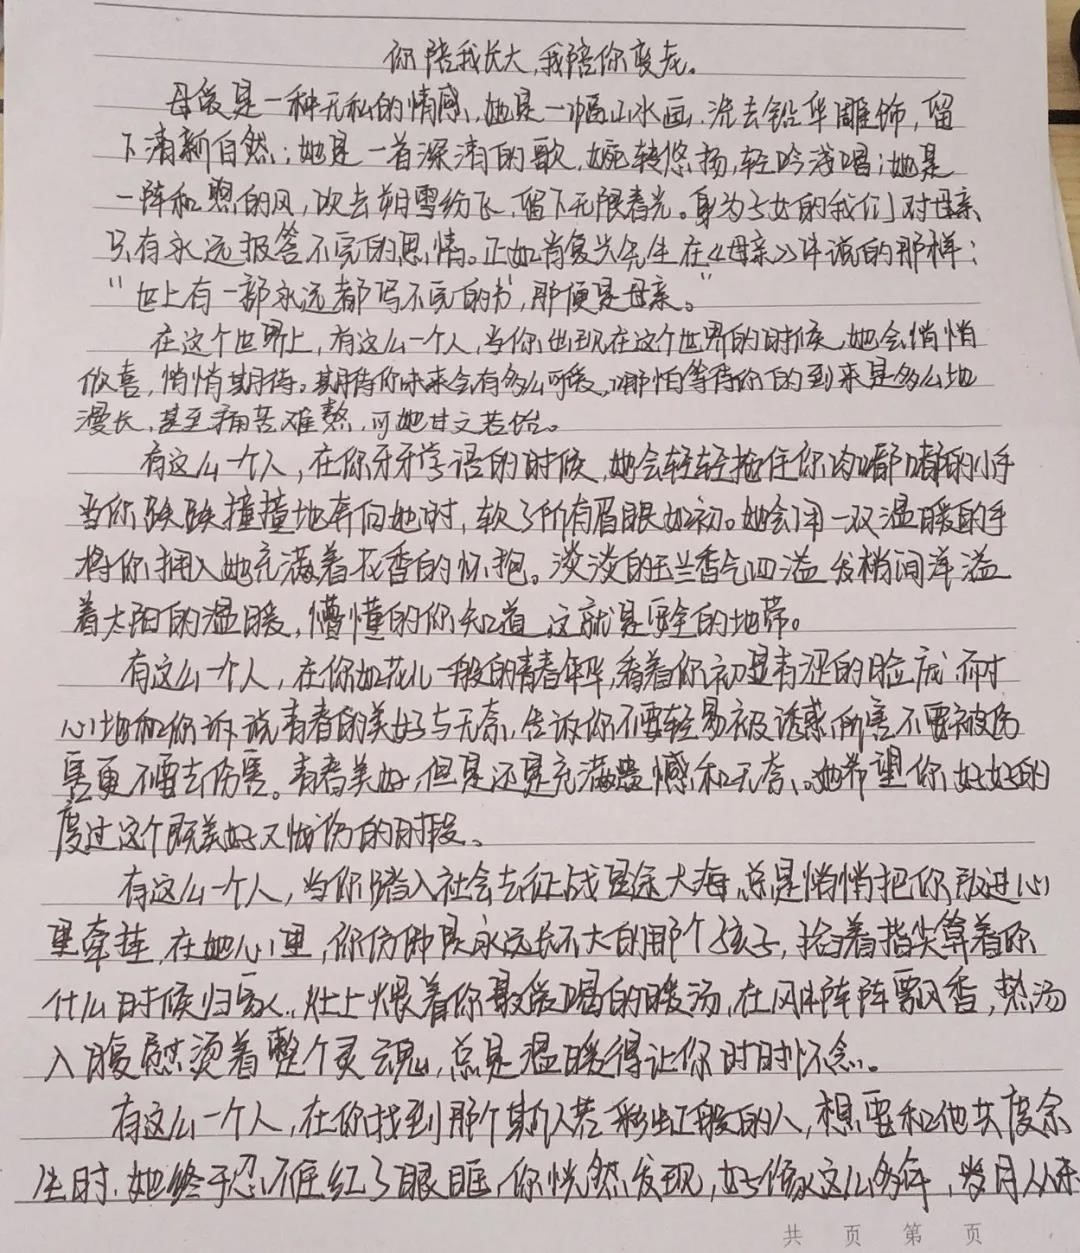 你陪我长大,我陪你变老。
母爱是一种无私的情感,她是一幅山水画,洗去铅华雕饰,留
下清新自然;她是一首深清的歌,婉转悠扬,轻吟浅唱;她是
一阵和煦的风,吹去朔雪纷飞,留下无限春光。身为子女的我们对母亲
只有永远报答不完的恩情。正如肖复兴先生在《母亲》中说的那样:
“世上有一部永远都写不完的书,那便是母亲。”
在这个世界上,有这么一个人,当你出现在这个世界的时候,她会悄悄
欣喜,悄悄期待。期待你味来会有多么可爱,哪怕等待你的到来是多么地
漫长,甚至痛苦难熬,可她甘之若饴。
有这么一个人,在你牙牙学语的时候,她会轻轻拖住你肉嘟嘟的小手
当你跌跌撞撞地奔向她时,软了所有眉眼如初。她会用一双温暖的手
将你拥入她充满着花香的怀抱。淡淡的玉兰香气四溢,发梢间洋溢
着太阳的温暖,懵懂的你知道,这就是安全的地带。
有这么一个人,在你如花儿一般的青春年华,看着你初显青涩的脸庞,耐
心地和你诉说青春的美好与无奈,告诉你不要轻易被诱惑所害不要被伤
害更不要去伤害。青春美好,但是还是充满遗憾和无奈、。她希望你好好的
度过这个既美好又忧伤的时段。
有这么一个人,当你踏入社会去征战星途大海,总是悄悄把你放进心
里牵挂,在她心里,你仿佛是永远长不大的那个孩子,掐着指尖算着你
什么时候归家,灶上煨着你最爱喝的暖汤,在风中阵阵飘香,热汤
入腹慰烫着整个灵魂,总是温暖得让你时时怀念。
有这么一个人,在你找到那个斯人若彩虹般的人,想要和他共度余
生时,她终于忍不住红了眼眶,你恍然发现,好像这么多年,岁月从未
共 页 第 页